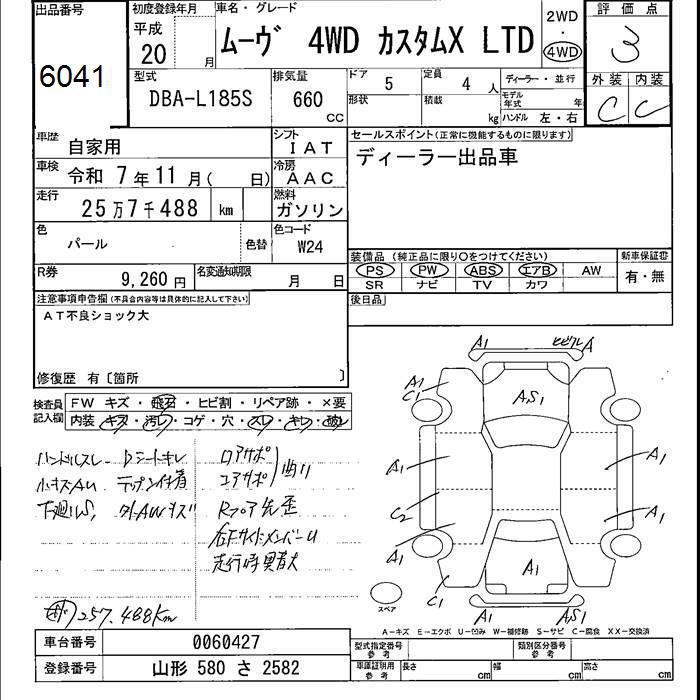 出品番号
6041
初度登録年月
平成
20 月
車名・グレード
ムーヴ 4WD カスタムX LTD
2WD
・
4WD
評価点
3
型式
DBA-L185S
排気量
660
CC
ドア
5
定員
4 人
形状
積載
kg
ディーラー・並行
モデル
年式 年
ハンドル 左・右
外装 内装
C C
車歴
自家用
シフト
IAT
車検
令和 7年 11月( 日)
冷房
AAC
走行
25万7千488 km
燃料
ガソリン
色
パール
色替
色コード
W24
R券
9,260円
名変通知期限
月 日
セールスポイント(正常に機能するものに限ります)
ディーラー出品車
装備品(純正品に限り○をつけてください)
PS PW ABS エアB AW
SR ナビ TV カワ
新車保証書
有・無
後日品
注意事項申告欄(不具合内容等は具体的に記入して下さい)
AT不良ショック大
修復歴 有〔箇所 〕
検査員
記入欄
FW キズ・飛石・ヒビ割・リペア跡・×要
内装 キズ・汚レ・コゲ・穴・スレ・キレ・破レ
ハンドルスレ Dシートキレ
小キズAU
下廻りS1 外AWキズ
ロアサポ
コアサポ
走行時異音大
257.488Km
A1
ヒビワレA
A1
C1
A,S1
A1
A1
C2
A1
A1
A1
C1
A1
A,S1
スペア
A-キズ E-エクボ U-凹み W-補修跡 S-サビ C-腐食 XX-交換済
車台番号
0060427
登録番号
山形 580 さ 2582
型式指定番号
参考
類別区分番号
参考
車庫証明用
参考
長さ
cm
幅
cm
高さ
cm